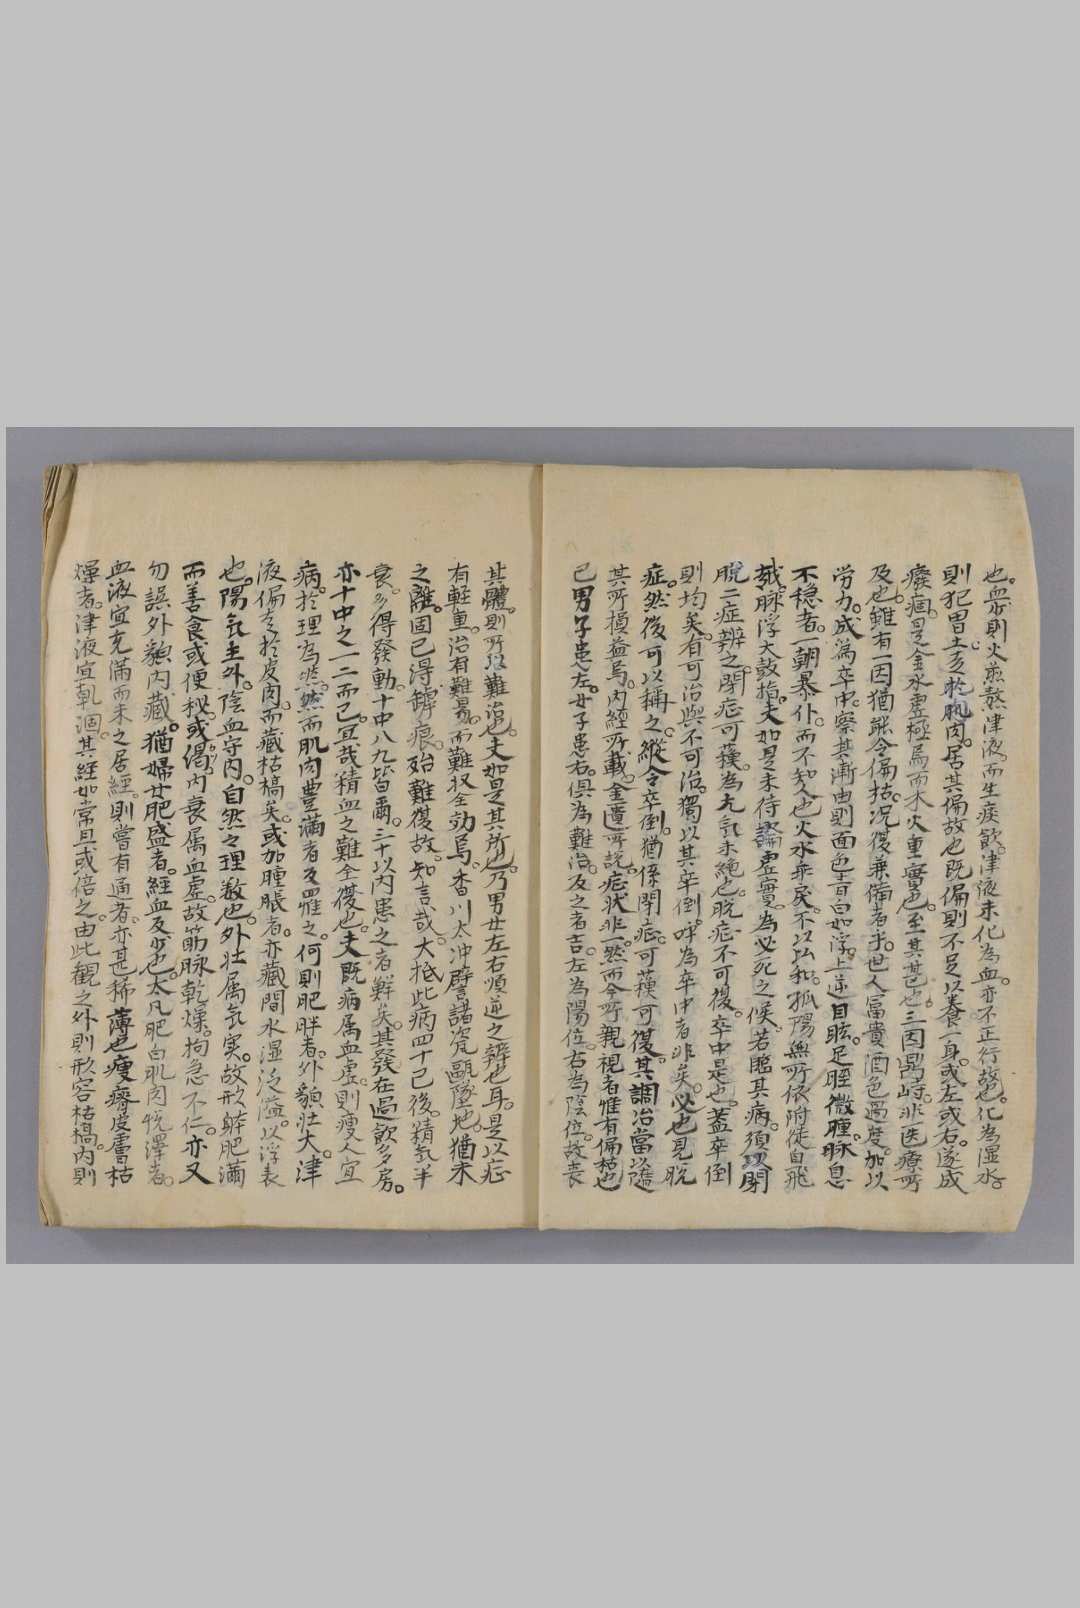 也。血虚則火煎熬津液。而生痰飲。津液未化為血。亦不正行故也。化為湿水。
則犯胃土。多於肌肉。居其偏故也。既偏則不足以養一身。或左或右。遂成
癈痼。是金水虚極焉。而木火重實也。至其甚也。三因鼎峙。非医療所
及也。雖有一因。猶能令偏枯。况復兼備者乎。世人富貴。酒色過度。加以
労力。成為卒中。察其漸由。則面色青白如浮。上逆目眩。足脛微腫。脉息
不穏者。一朝暴仆。而不知人也。火水乖戻。不以以和。孤陽無所依附。徒自飛
越。脉浮大鼓指。夫如是。未待論虚實。為必死之候。若臨其病。須以閉
脱二症辨之。閉症可蘓。為元気未絶也。脱症不可復。卒中是也。蓋卒倒
則均矣。有可治與不可治。獨以其卒倒。呼為卒中者非矣。必也見脱
症。然後可以稱之。縦令卒倒。猶係閉症。可蘓可復。其調治當以隨
其所損益焉。内經所載。金匱所説。症状非一。然而今所親視者。惟有偏枯也
已。男子患左。女子患右。俱為難治。反之者吉。左為陽位。右為陰位。故喪
其體。則所以難治也。夫如是其所也。乃男女左右順逆之辨也耳。是以症
有軽重。治有難易。而難収全効焉。香川太冲譬諸瓷甌墜地。猶未
之離。固已得罅痕。殆難復故。知言哉。大抵此病四十已後。精気半
衰。多得發動。十中八九皆爾。三十以内患之者鮮矣。其發在過飲多房。
亦十中之一二而已。宜哉精血之難全復也。夫既病属血虚。則瘦人宜
病。於理為然。然而肌肉豊満者反罹之。何則肥胖者。外貌壮大。津
液偏走於皮肉。而藏枯槁矣。或加腫脹者。亦藏間水湿泛溢。以浮表
也。陽気主外。陰血守内。自然之理数也。外壮属気実。故形躰肥満
而善食。或便秘。或渇。内衰属血虚。故筋脉乾燥。拘急不仁。亦又
勿誤外貌内藏。猶婦女肥盛者。經血反少也。大凡肥白肌肉悦澤者。
血液宜充満而未之居經。則嘗有通者。亦甚稀薄也。瘦瘠皮膚枯
燥者。津液宜乾涸。其経如常。且或倍之。由此観之。外則形容枯槁。内則